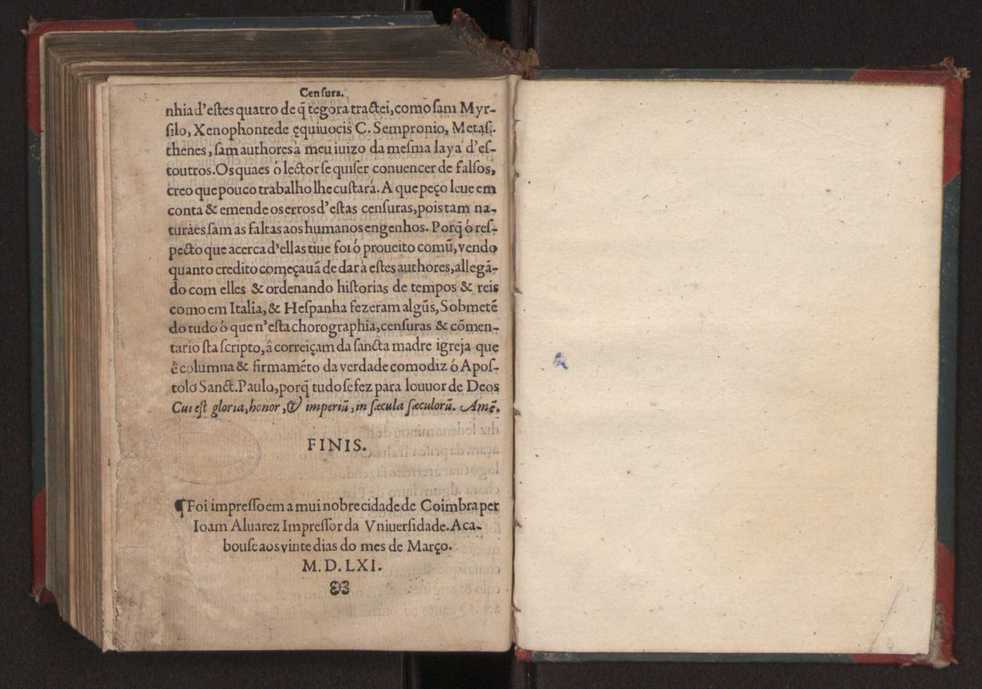 Cenſura.
nhia d'eſtes quatro de q̃ tegora tractei, como ſam Myr-
ſilo, Xenophonte de ęquiuocis C. Sempronio, Metaſ-
thenes, ſam authores à meu iuizo da meſma laya d'eſ-
toutros. Os quaes ó lector ſe quiſer conuencer de falſos,
creo que pouco trabalho lhe cuſtará. A que peço leue em
conta & emende os erros d'eſtas cenſuras, pois tam na-
turáes ſam as faltas aos humanos engenhos. Porq̃ ó reſ-
pecto que acerca d'ellas tiue foi ó proueito comũ, vendo
quanto credito começauã de dar à eſtes authores, allegã-
do com elles & ordenando hiſtorias de tempos & reis
como em Italia, & Heſpanha fezeram algũs, Sobmetẽ
do tudo ó que n'eſta chorographia, cenſuras & cõmen-
tario ſta ſcripto, â correiçam da ſancta madre igreja que
ê columna & firmamẽto da verdade como diz ó Apoſ-
tolo Sanct. Paulo, porq̃ tudo ſe fez para louuor de Deos
Cui eſt gloria, honor, & imperiũ, in ſæcula ſæculorũ. Amẽ.
FINIS.
¶ Foi impreſſo em a mui nobre cidade de Coimbra per
Ioam Aluarez Impreſſor da Vniuerſidade. Aca-
bouſe aos vinte dias do mes de Março.
M. D. LXI.